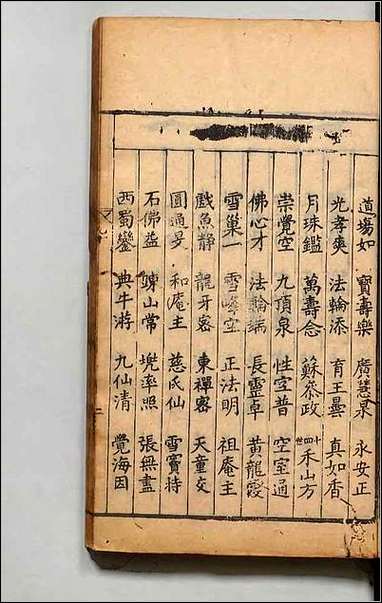 道場如 寶壽樂 廣慧泉 永安正
光孝爽 法輪添 育王曇 真如香
月珠鑑 萬壽念 蘇叅政 十四世 禾山方
崇覺空 九頂泉 性空普 空室通
佛心才 法輪端 長靈卓 黃龍震
雪巢一 雪峰空 正法明 祖庵主
戲魚靜 龍牙密 東禪密 天童交
圓通旻 和庵主 慈氏仙 雪竇持
石佛益 疎山常 兜率照 張無盡
西蜀鑾 典牛游 九仙清 覺海因